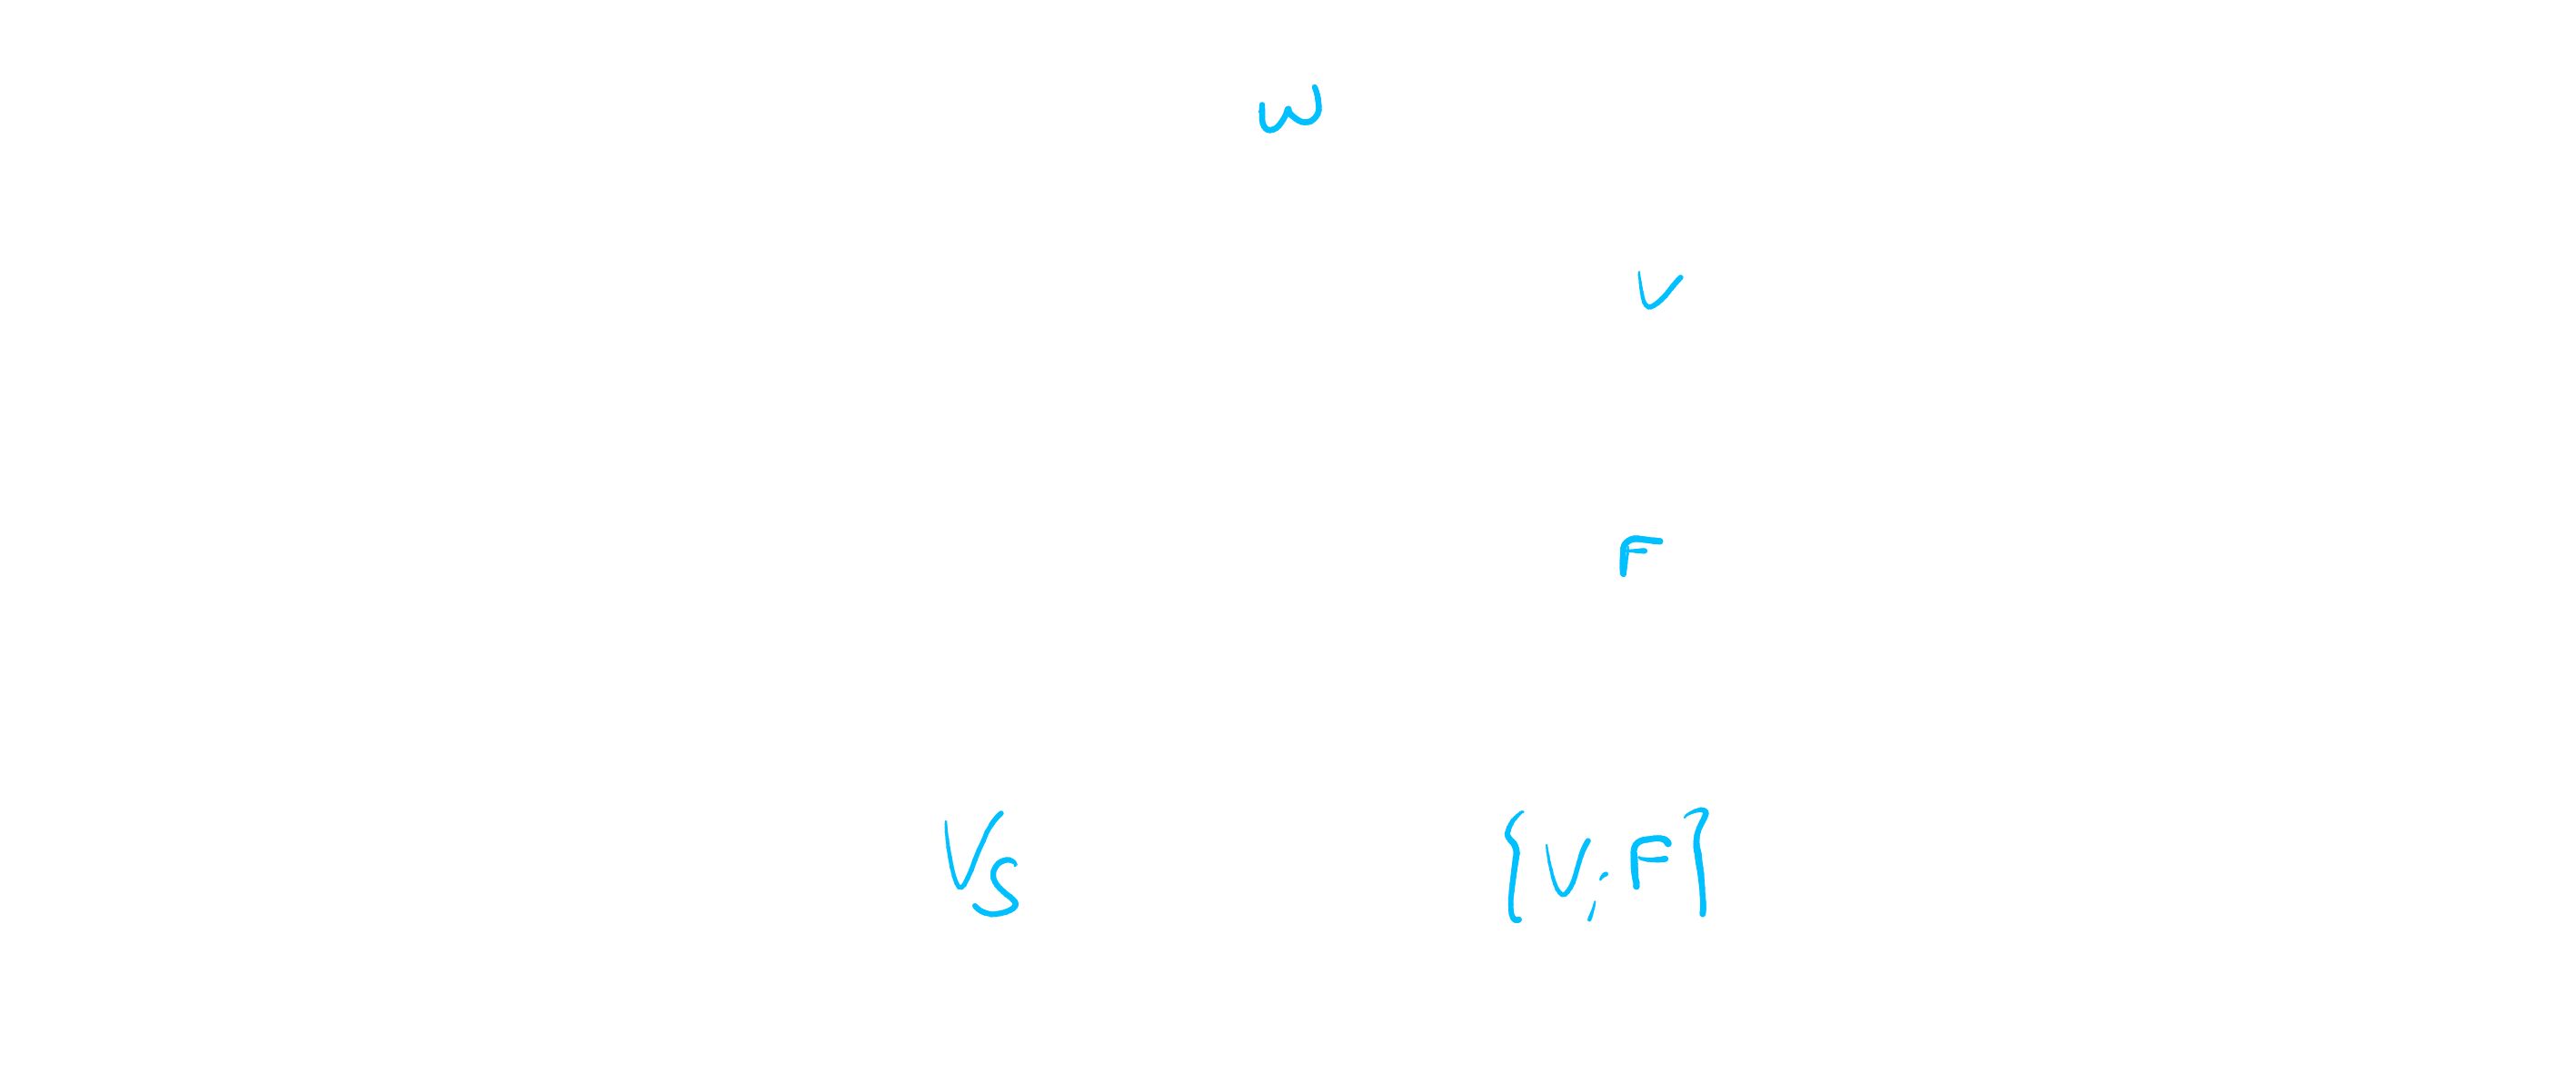 w
v
F
Vs {V; F}